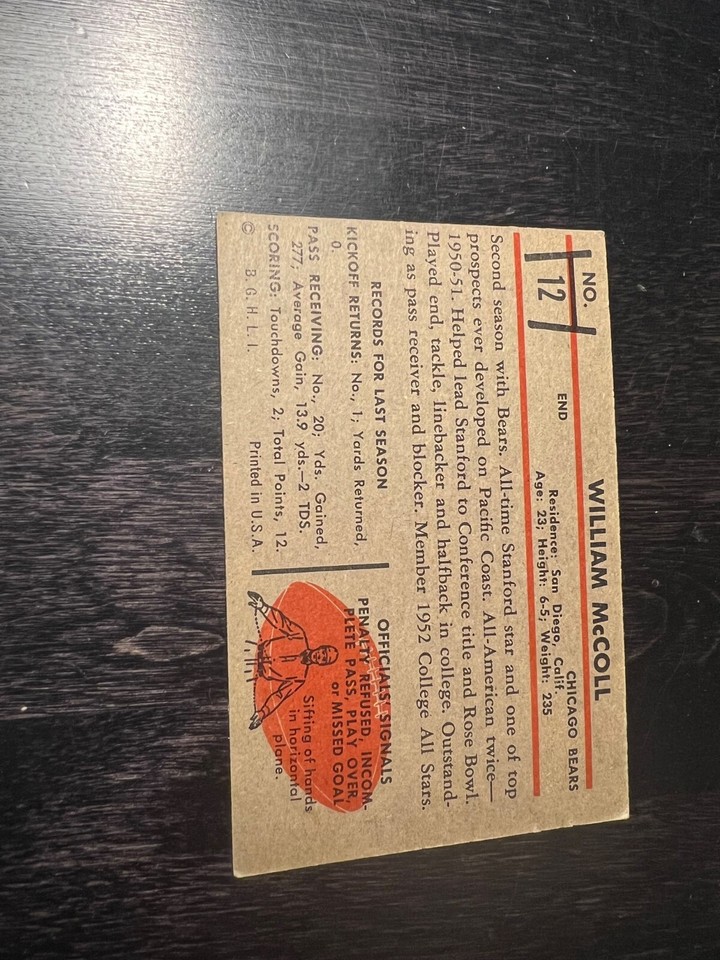 NO.
12
WILLIAM McCOLL
END
CHICAGO BEARS
Residence: San Diego, Calif.
Age: 23; Height: 6-5; Weight: 235
Second season with Bears. All-time Stanford star and one of top
prospects ever developed on Pacific Coast. All-American twice—
1950-51. Helped lead Stanford to Conference title and Rose Bowl.
Played end, tackle, linebacker and halfback in college. Outstand-
ing as pass receiver and blocker. Member 1952 College All Stars.
RECORDS FOR LAST SEASON
KICKOFF RETURNS: No., 1; Yards Returned,
0.
PASS RECEIVING: No., 20; Yds. Gained,
277; Average Gain, 13.9 yds.—2 TDS.
SCORING: Touchdowns, 2; Total Points, 12.
© B. G. H. L. I.
Printed in U.S.A.
OFFICIALS' SIGNALS
PENALTY REFUSED, INCOM-
PLETE PASS, PLAY OVER,
or MISSED GOAL
Sifting of hands
in horizontal
plane.